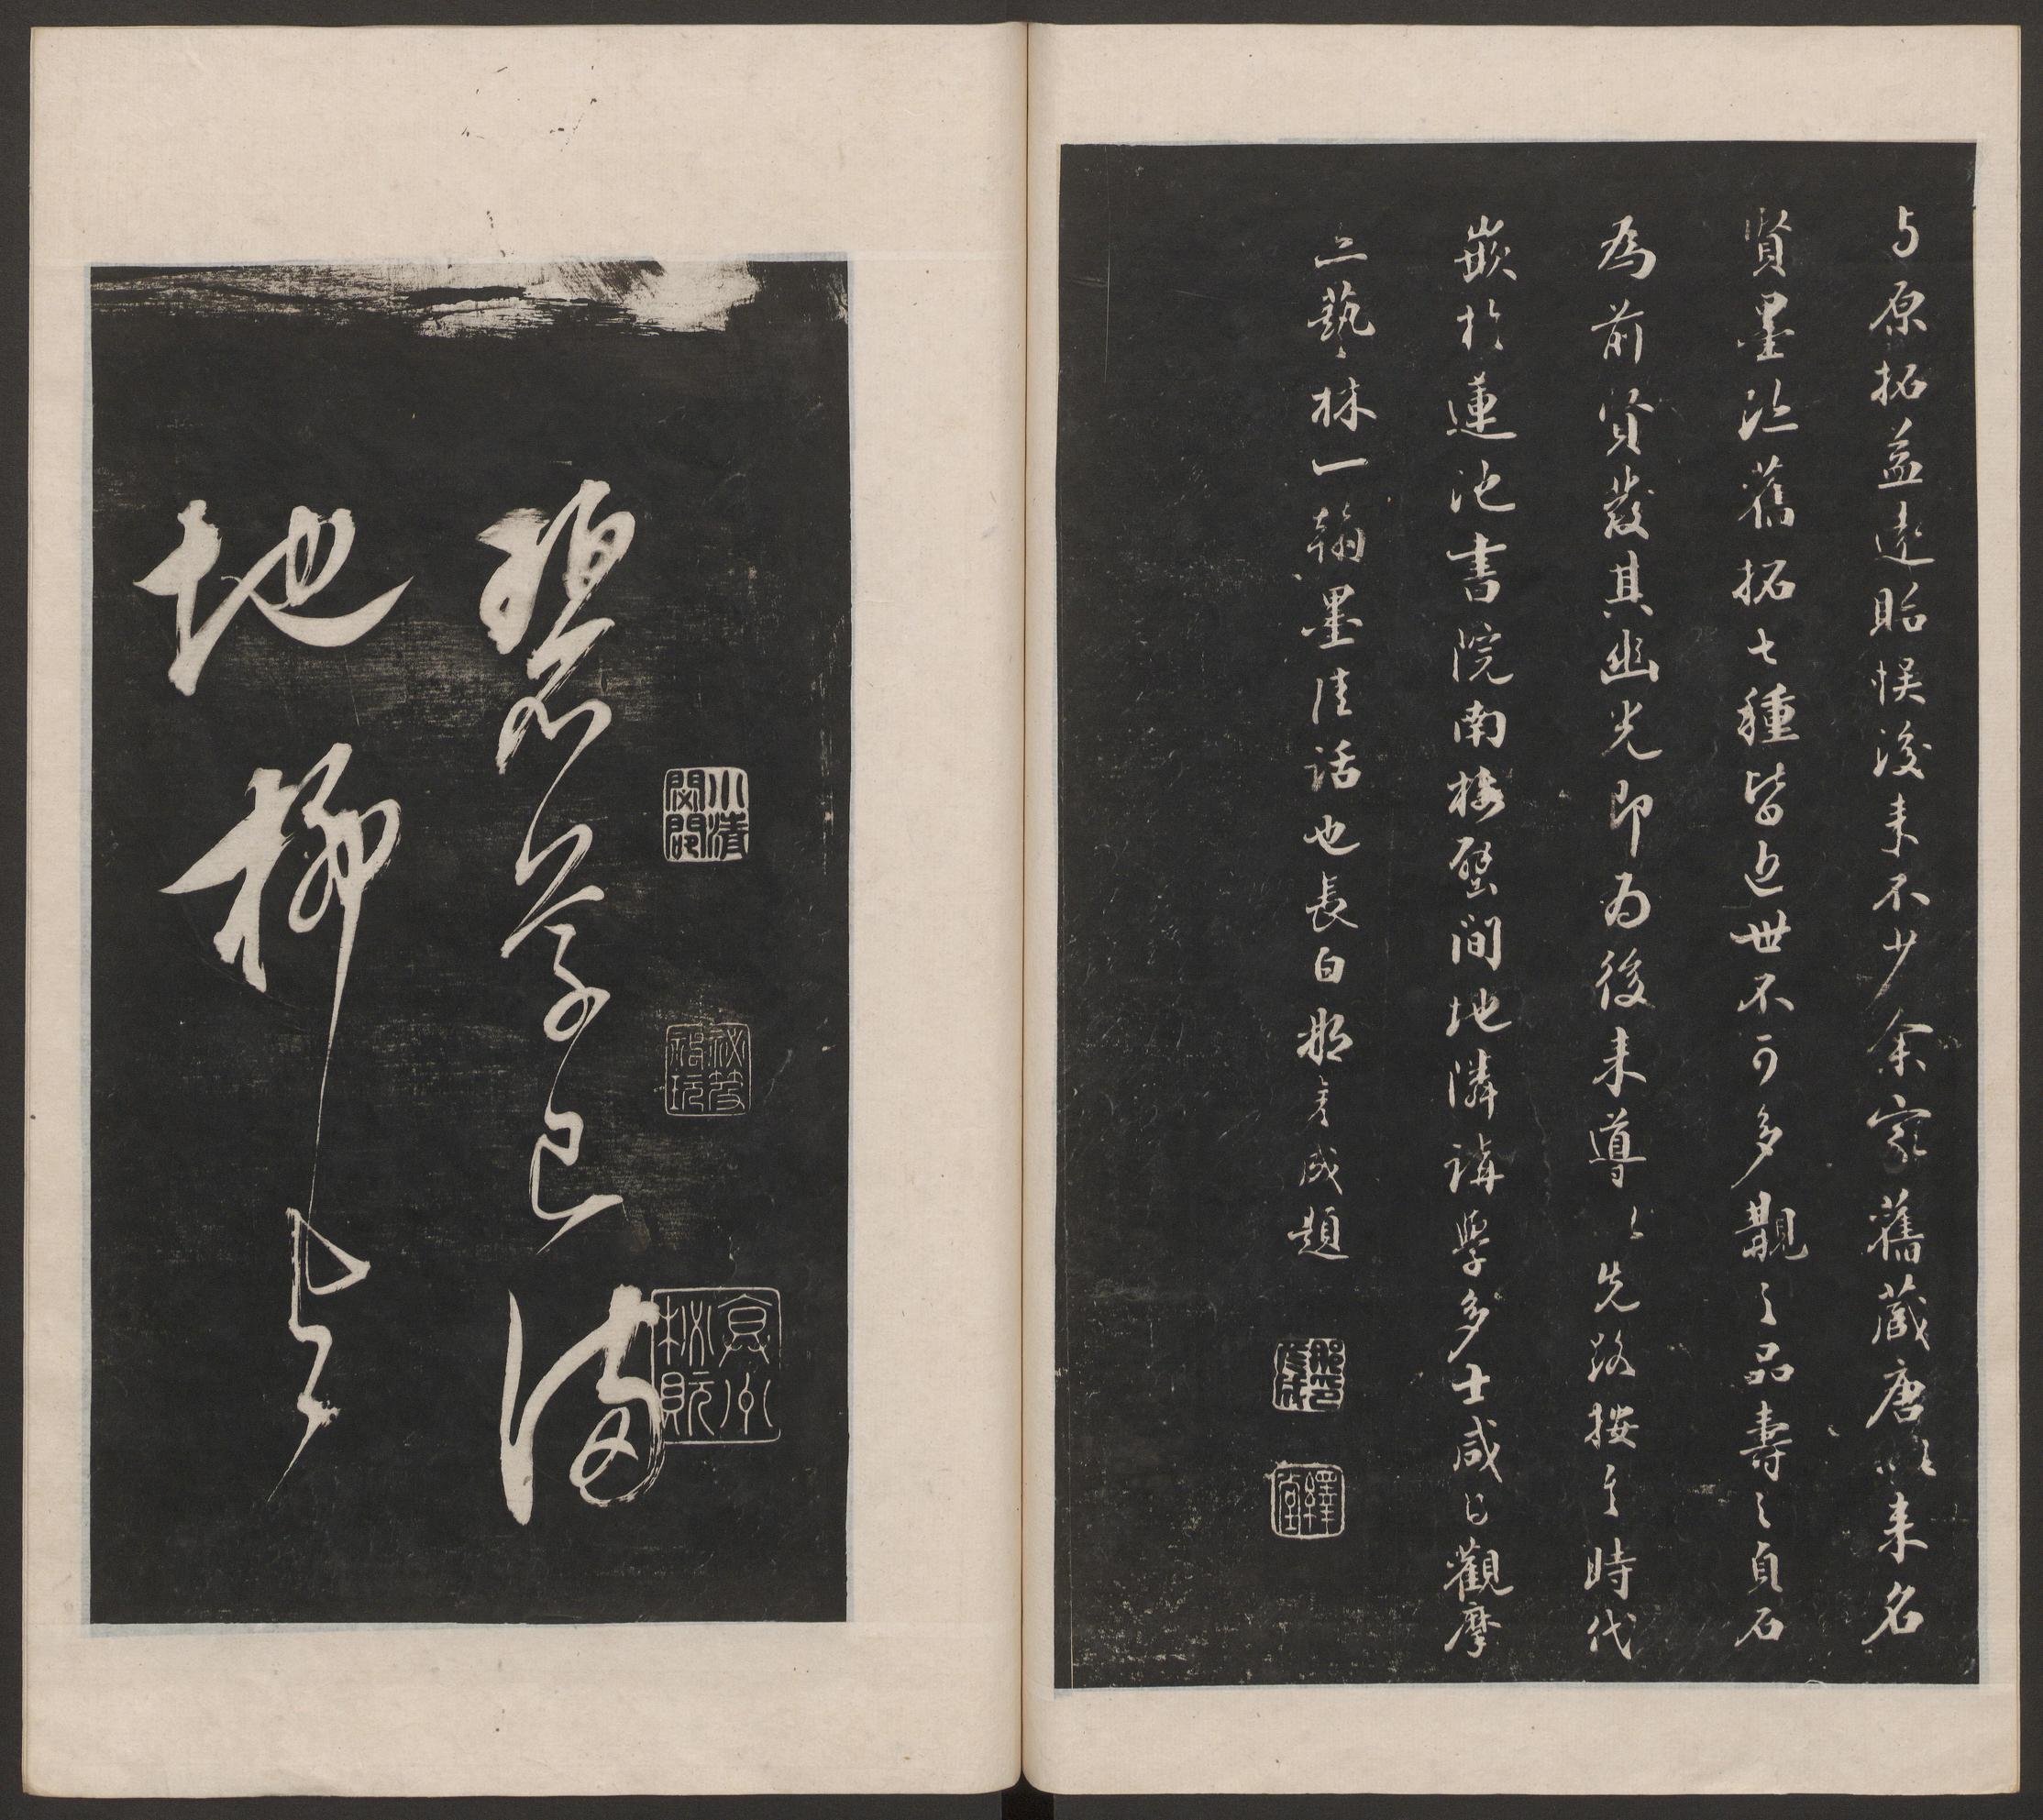 与原拓益遠貽悮後来不少余家舊藏唐以来名
賢墨跡舊拓七種皆近世不可多覯之品壽之貞石
為前賢發其幽光即為後来導以先路按其時代
嵌於蓮池書院南楼壁間地隣講學多士咸㠯觀摩
亦藝林一翰墨佳話也長白那彥成題
繹堂
小清閟閣
碧草已滿
地柳与